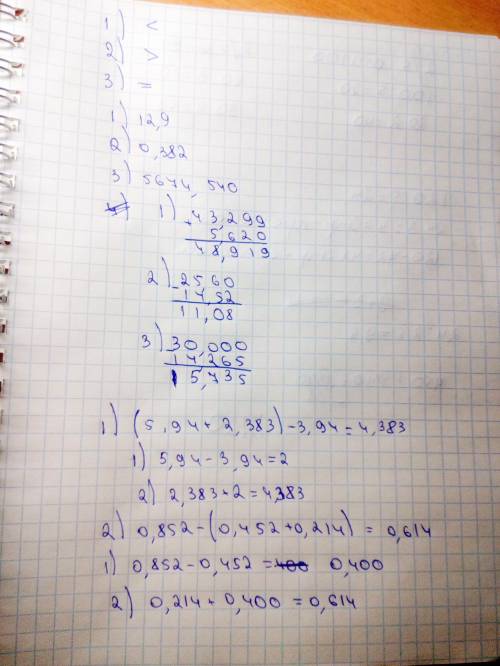 1) <
2) >
3) =
1) 12,9
2) 0,382
3) 5674, 540
1) 43,299
+ 5,620
48,919
2) - 25,60
14,52
11,08
3) - 30,000
14,265
15,735
1) (5,94 + 2,383) - 3,94 = 4,383
1) 5,94 - 3,94 = 2
2) 2,383 + 2 = 4,383
2) 0,852 - (0,452 + 0,214) = 0,614
1) 0,852 - 0,452 = 0,400
2) 0,214 + 0,400 = 0,614